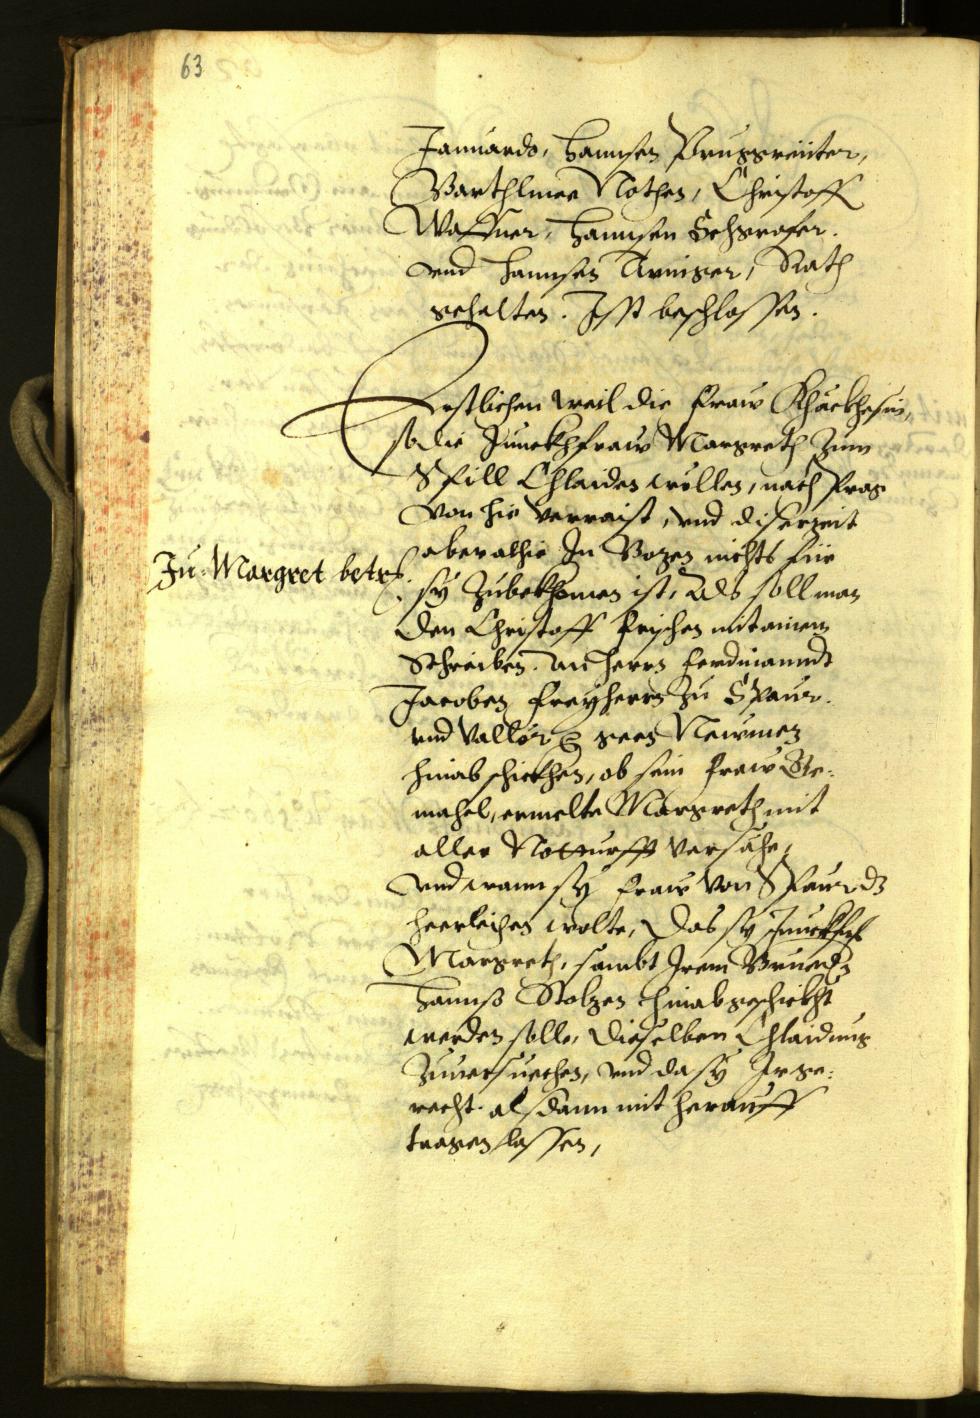 63
Januardo, Hannsen Pruggreiiter,
Barthlmee Nothen, Christoff
Waffner, Hannsen Gehgrafer.
vnd Hannsen Aruiger, Rath
gehalten. Ist beschlossen.
Erstlichen weil die Fraw Khäckhesin,
so die Junckhfraw Margreth Zum
Spill Chlaiden wöllen, nach Prag
von hie verraist, vnd diserzeit
aber alhie In Bozen nichts für
sy Zubekhomen ist, Als soll man
den Christoff frischen mit ainem
Schreiben an Herrn Ferdinanndt
Jacoben Freyherrn Zu Spaur.
vnd Vallör gen Newmen
hinab schickhen, ob sein Fraw Ge:
mahel, ermelte Margreth mit
aller Notturfft versähe,
vnd wann sy Fraw von Spaur dz
herleichen wolte, Das sy Junckhfr
Margreth, sambt Irem Bruedern
Hannß Stolzen hinab geschickht
werden solle, dieselben Chlaidung
Zuuersuechen, vnd da sy Ir ge:
recht alsdann mit herauff
tragen lassen,
Ju: Margret betr.